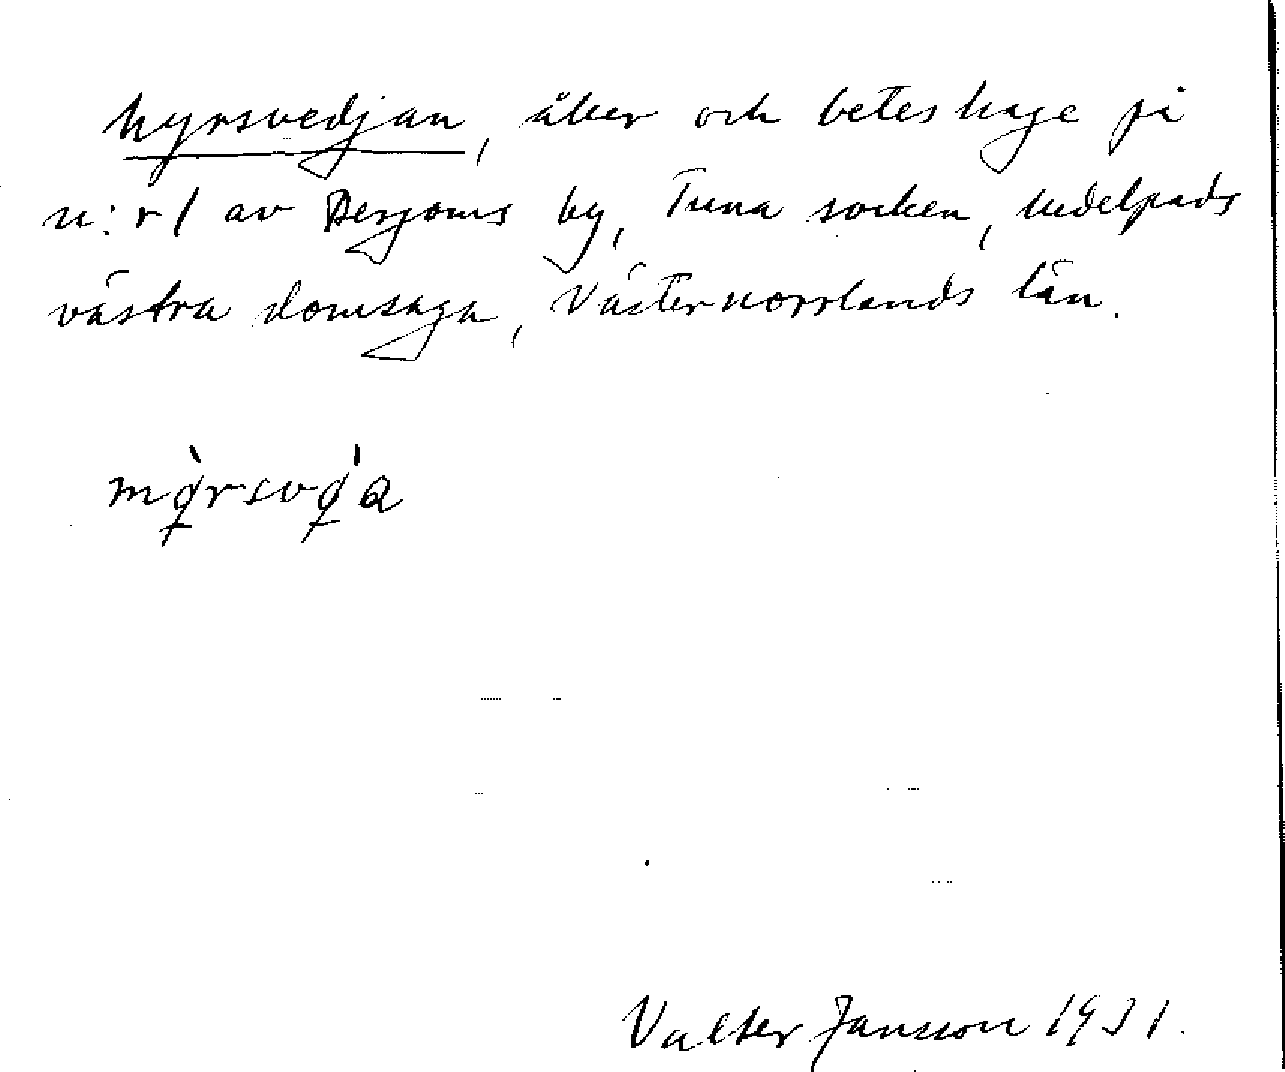 Myrsvedjan, åker och beteshage på
n:r 1 av Bergoms by, Tuna socken, Medelpads
västra domsaga, Västernorrlands län.
Valter Jansson 1931.